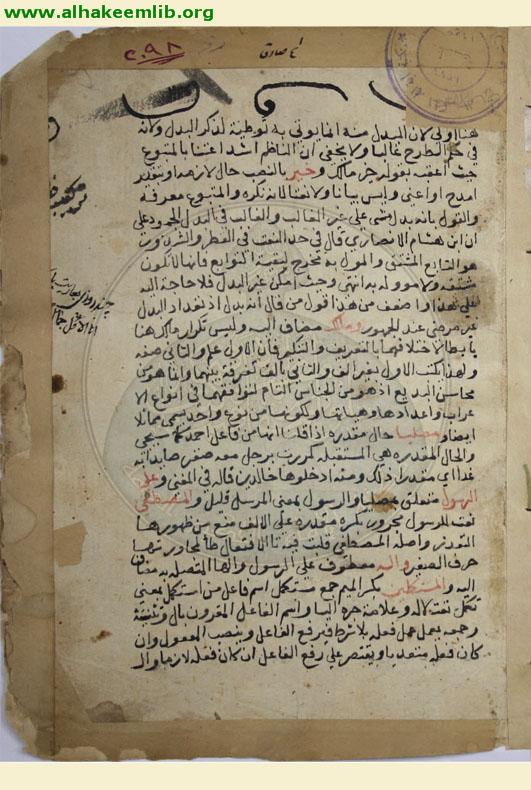 www.alhakeemlib.org
٢٠٩٨
هنا اولى لان المبدل منه انما يؤتى به توطئة لذكر البدل ولانه
في حكم الطرح غالبا ولا يخفى ان الناظم اشد اعتنا بالمتبوع
حيث اعقبه بقوله خير مالك وخير بالنصب حال لازمه او بتقدير
امدح او اعنى وليس بيانا ولا نعتا لانه نكره والمتبوع معرفة
والقول بانه بدل مشى على غير الغالب والغالب في البدل الجمود على
ان ابن هشام الانصاري قال في حد النعت في القطر والشذور
هو التابع المشتق او المول به مخرج لبقية التوابع فانها لا تكون
مشتقه ولا مووله به انتهى وحيث امكن غير البدل فلا حاجة اليه
على هذا واضعف من هذا قول من قال انه بدل اذ تعداد البدل
غير مرضى عند الجمهور ومالك مضاف اليه وليس تكرار مالك هنا
بايطا لاختلافهما بالتعريف والتنكير فان الاول علم والثاني صفه
ولهذا كتب الاول بغير الف والثاني بالف تفرقة بينهما وانما هو من
محاسن البديع اذ هو من الجناس التام لتوافقهما في انواع الا
عراب واعدادها وهيأتها ولكونهما من نوع واحد سمى مماثلا
ايضا ومصليا حال مقدره اذا قلنا انها من فاعل احمد كما سيجي
والحال المقدره هي المستقبله كمررت برجل معه صقر صايدا به
غدا اى مقدرا ذلك ومنه ادخلوها خالدين قاله في المغنى وعلى
الرسول متعلق بمصليا والرسول بمعنى المرسل قليل والمصطفى
نعت للرسول مجرور بكسره مقدره على الالف منع من ظهورها
التعذر واصله المصتفى قلبت فيه تا الافتعال طا لمجاورتها
حرف الصفير واله معطوف على الرسول والها المتصله به مضاف
اليه والمستكملين بكسر الميم جمع مستكمل اسم فاعل من استكمل بمعنى
تكمل نعت لاله وعلامة جره اليا واسم الفاعل المقرون بال وتثنيته
وجمعه يعمل عمل فعله بلا شرط فيرفع الفاعل وينصب المفعول وان
كان فعله متعديا ويقتصر على رفع الفاعل ان كان فعله لازما وال